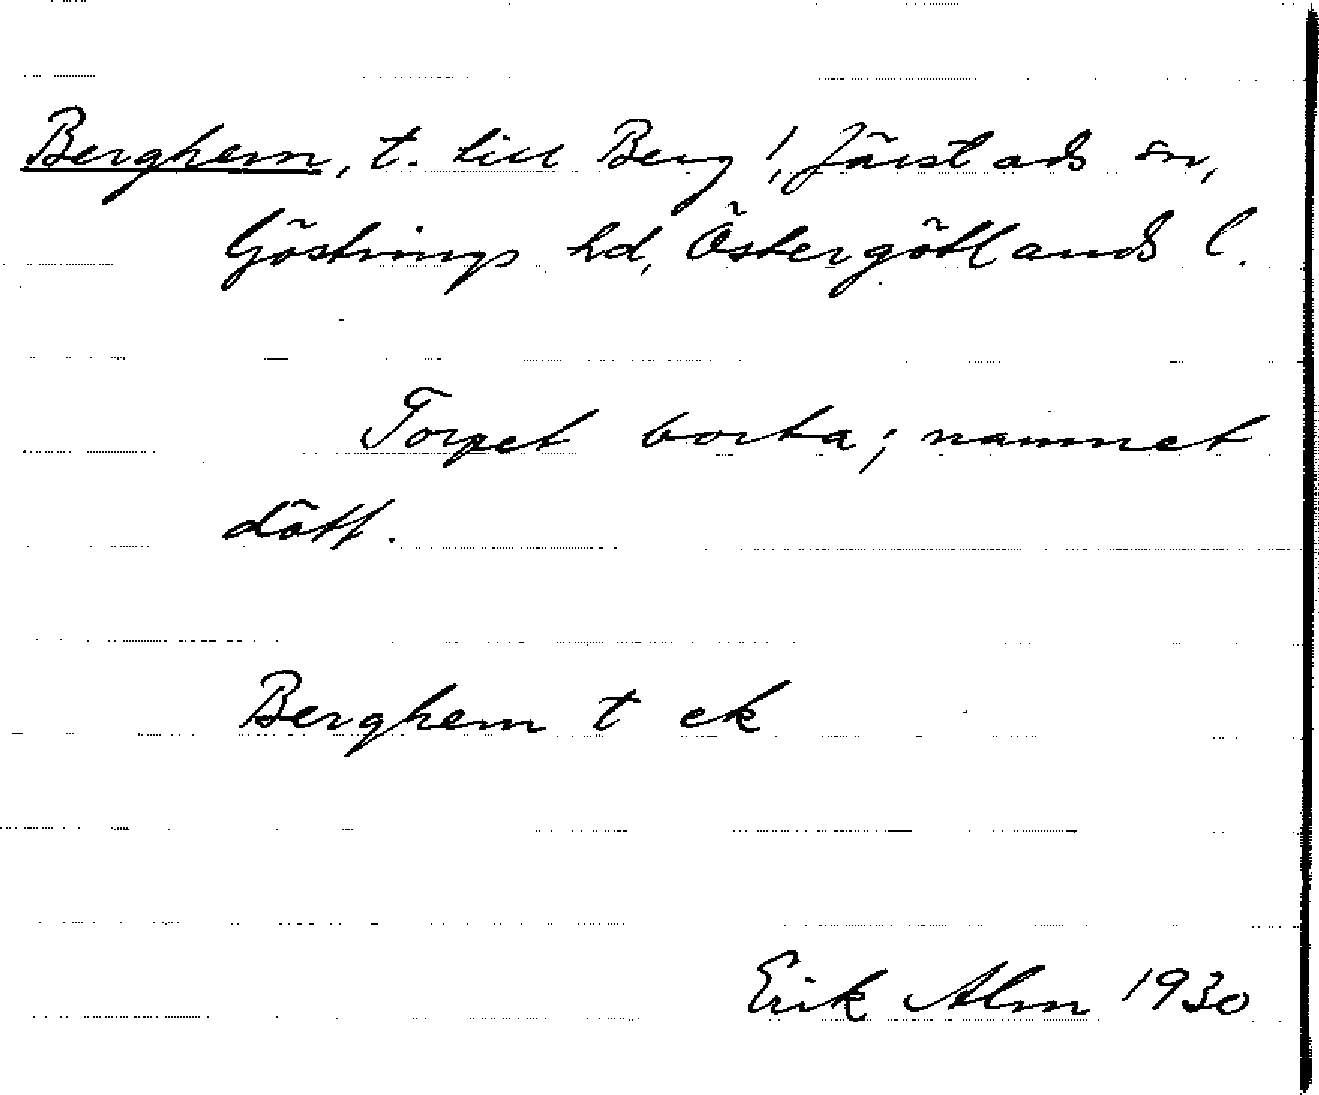 Berghem, t. till Berg!, Järstads sn,
Göstrings hd, Östergötlands l.
Torpet borta; namnet
dött.
Berghem t ek
Erik Alm 1930